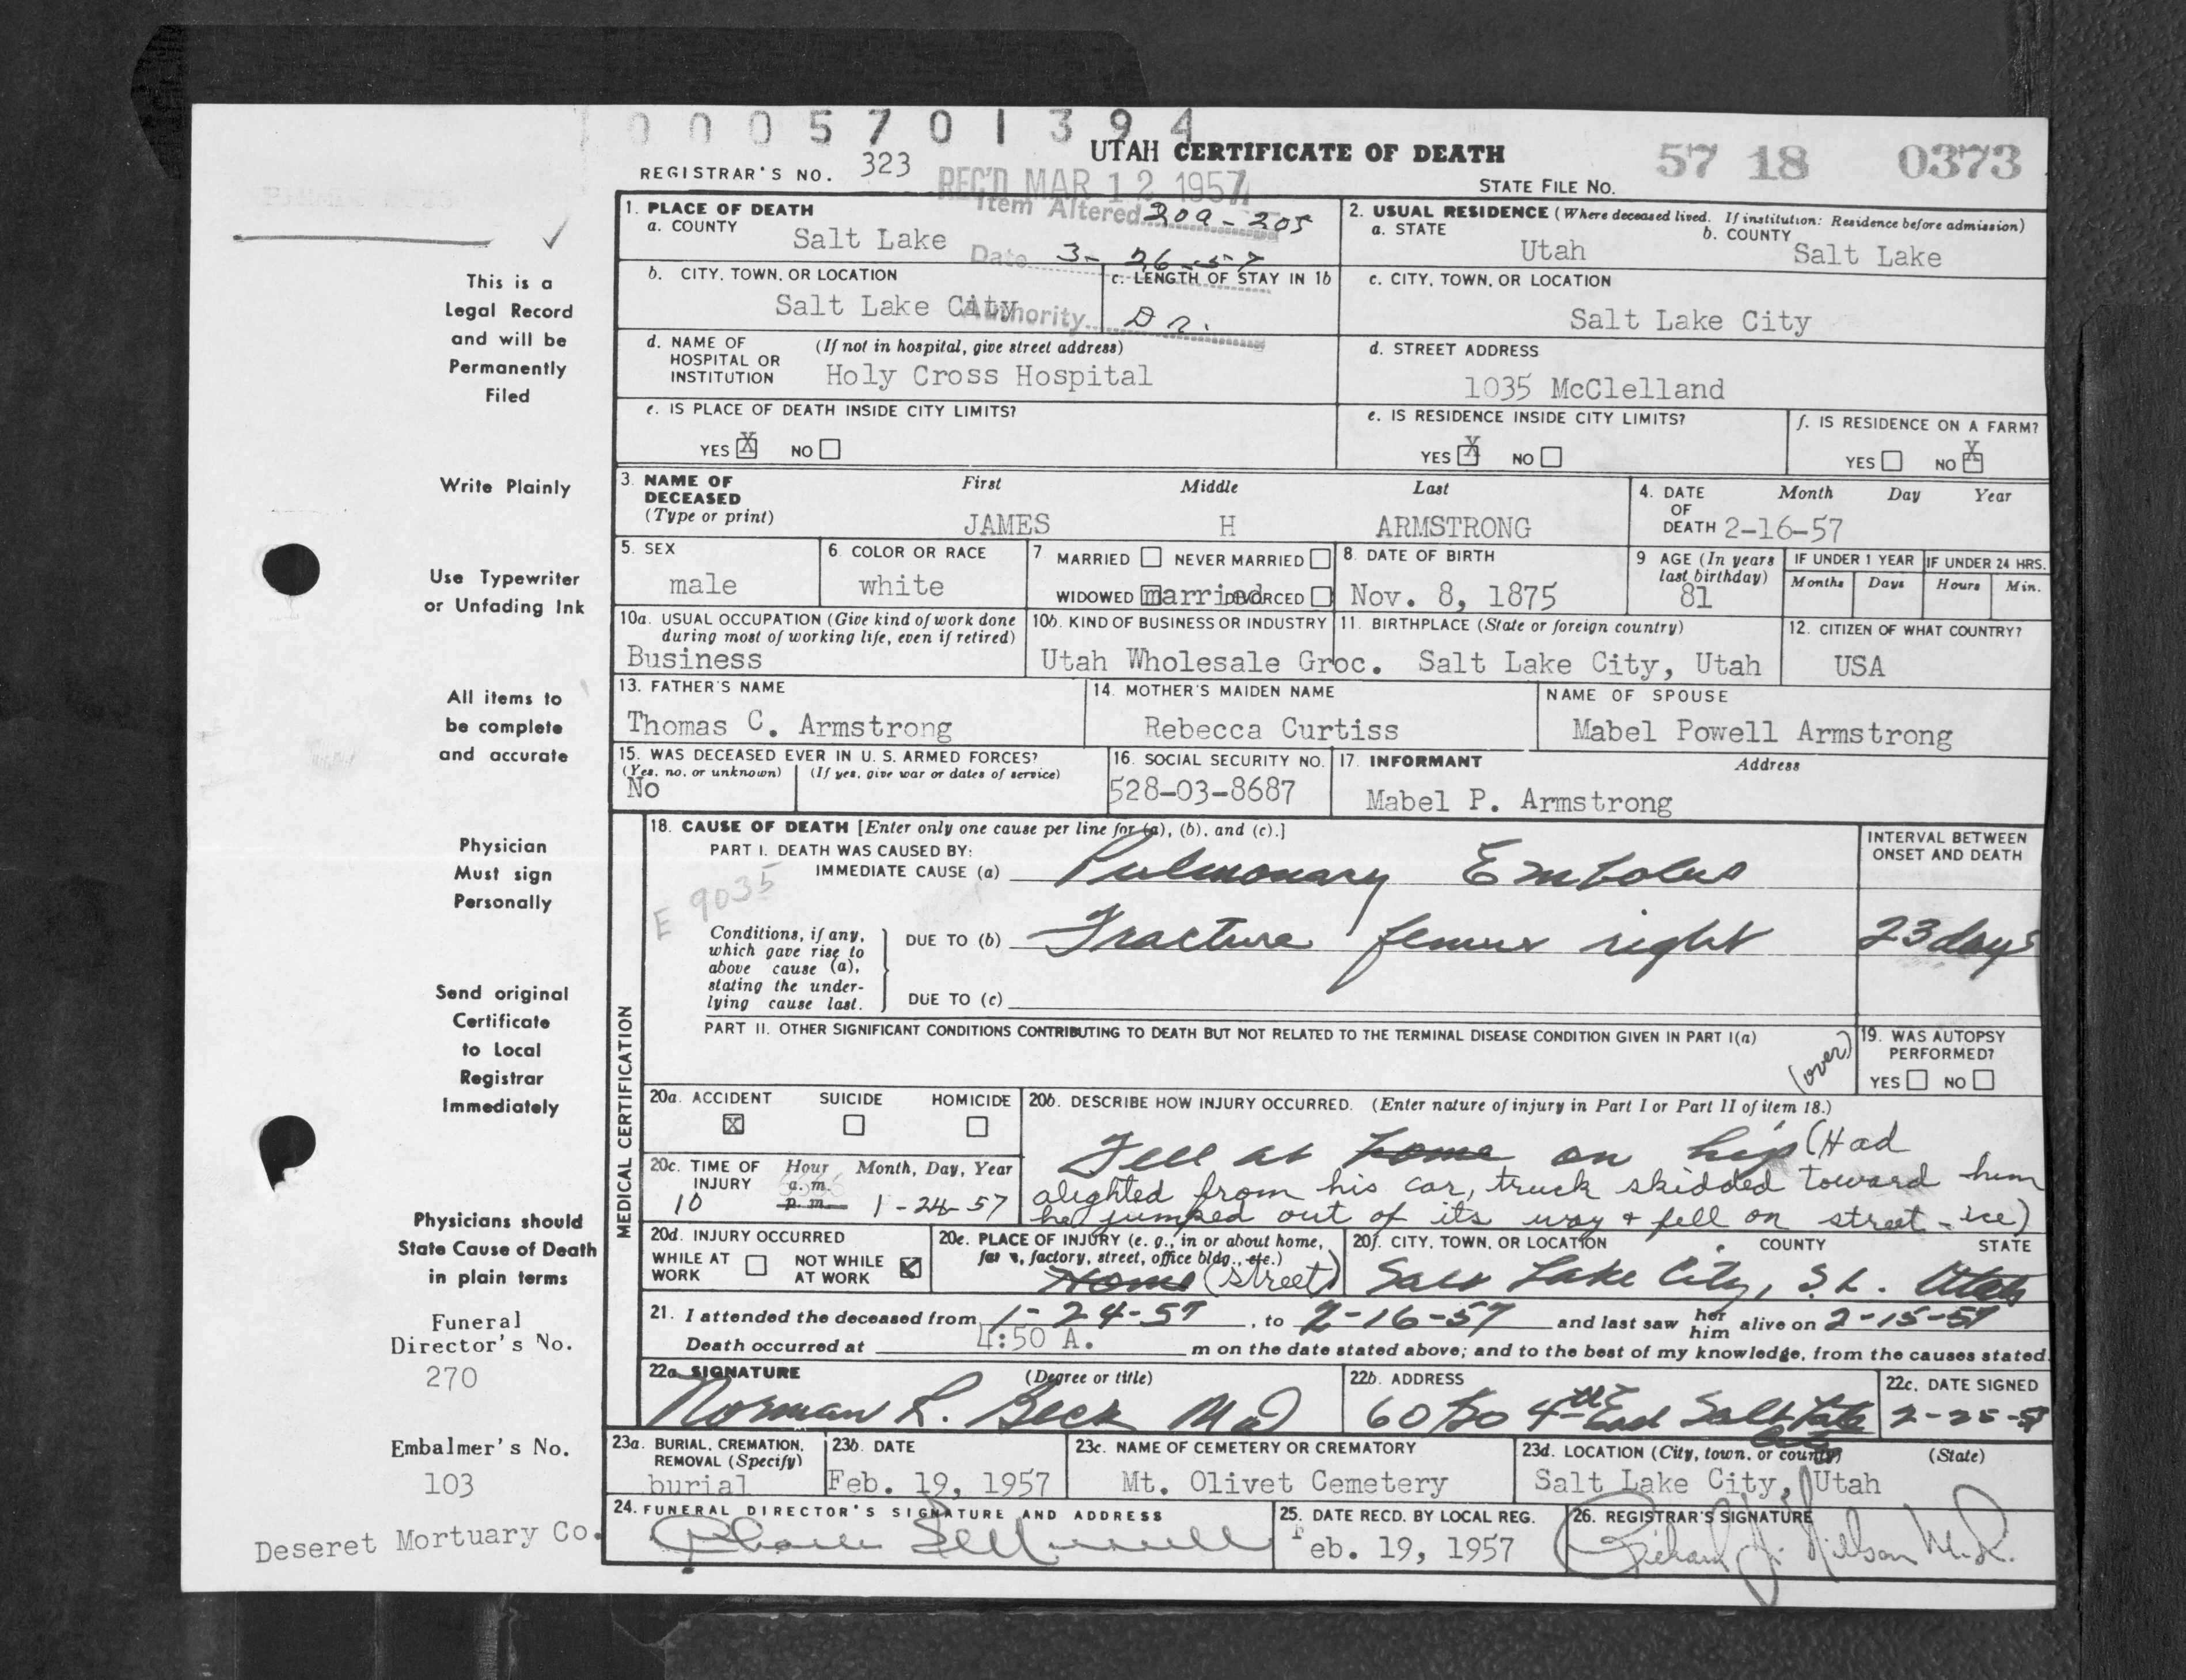 0005701394
UTAH CERTIFICATE OF DEATH
57 18 0373
REGISTRAR'S NO. 323
REC'D MAR 12 1957
STATE FILE NO.
Item Altered 20a-20f
Date 3-26-57
Authority Dr.
1. PLACE OF DEATH
a. COUNTY
Salt Lake
2. USUAL RESIDENCE (Where deceased lived. If institution: Residence before admission)
a. STATE
Utah
b. COUNTY
Salt Lake
b. CITY, TOWN, OR LOCATION
Salt Lake City
c. LENGTH OF STAY IN 1b
c. CITY, TOWN, OR LOCATION
Salt Lake City
d. NAME OF HOSPITAL OR INSTITUTION
(If not in hospital, give street address)
Holy Cross Hospital
d. STREET ADDRESS
1035 McClelland
e. IS PLACE OF DEATH INSIDE CITY LIMITS?
YES X NO
e. IS RESIDENCE INSIDE CITY LIMITS?
YES X NO
f. IS RESIDENCE ON A FARM?
YES NO X
3. NAME OF DECEASED (Type or print)
First Middle Last
JAMES H ARMSTRONG
4. DATE OF DEATH
Month Day Year
2-16-57
5. SEX
male
6. COLOR OR RACE
white
7. MARRIED NEVER MARRIED
WIDOWED married DIVORCED
8. DATE OF BIRTH
Nov. 8, 1875
9 AGE (In years last birthday)
81
IF UNDER 1 YEAR
Months Days
IF UNDER 24 HRS.
Hours Min.
10a. USUAL OCCUPATION (Give kind of work done during most of working life, even if retired)
Business
10b. KIND OF BUSINESS OR INDUSTRY
Utah Wholesale Groc.
11. BIRTHPLACE (State or foreign country)
Salt Lake City, Utah
12. CITIZEN OF WHAT COUNTRY?
USA
13. FATHER'S NAME
Thomas C. Armstrong
14. MOTHER'S MAIDEN NAME
Rebecca Curtiss
NAME OF SPOUSE
Mabel Powell Armstrong
15. WAS DECEASED EVER IN U. S. ARMED FORCES?
(Yes, no, or unknown) (If yes, give war or dates of service)
No
16. SOCIAL SECURITY NO.
528-03-8687
17. INFORMANT
Address
Mabel P. Armstrong
MEDICAL CERTIFICATION
18. CAUSE OF DEATH [Enter only one cause per line for (a), (b), and (c).]
PART I. DEATH WAS CAUSED BY:
IMMEDIATE CAUSE (a) Pulmonary Embolus
INTERVAL BETWEEN ONSET AND DEATH
E 9035
Conditions, if any, which gave rise to above cause (a), stating the underlying cause last.
DUE TO (b) Fracture femur right
23 days
DUE TO (c)
PART II. OTHER SIGNIFICANT CONDITIONS CONTRIBUTING TO DEATH BUT NOT RELATED TO THE TERMINAL DISEASE CONDITION GIVEN IN PART I(a)
(over)
19. WAS AUTOPSY PERFORMED?
YES NO
20a. ACCIDENT SUICIDE HOMICIDE
X
20b. DESCRIBE HOW INJURY OCCURRED. (Enter nature of injury in Part I or Part II of item 18.)
Fell at home on hip (Had
alighted from his car, truck skidded toward him
he jumped out of its way & fell on street - ice)
20c. TIME OF INJURY
Hour Month, Day, Year
a. m.
p. m.
10 1-24-57
20d. INJURY OCCURRED
WHILE AT WORK NOT WHILE AT WORK X
20e. PLACE OF INJURY (e. g., in or about home, farm, factory, street, office bldg., etc.)
Home (street)
20f. CITY, TOWN, OR LOCATION COUNTY STATE
Salt Lake City, S. L. Utah
21. I attended the deceased from 1-24-57, to 2-16-57 and last saw her him alive on 2-15-57
Death occurred at 4:50 A. m on the date stated above; and to the best of my knowledge, from the causes stated.
22a SIGNATURE (Degree or title)
Norman R. Beck MD
22b. ADDRESS
4th East Salt Lake City
22c. DATE SIGNED
2-25-57
23a. BURIAL, CREMATION, REMOVAL (Specify)
burial
23b. DATE
Feb. 19, 1957
23c. NAME OF CEMETERY OR CREMATORY
Mt. Olivet Cemetery
23d. LOCATION (City, town, or county) (State)
Salt Lake City, Utah
24. FUNERAL DIRECTOR'S SIGNATURE AND ADDRESS
25. DATE RECD. BY LOCAL REG.
Feb. 19, 1957
26. REGISTRAR'S SIGNATURE
Richard J. Nilson M.D.
This is a
Legal Record
and will be
Permanently
Filed
Write Plainly
Use Typewriter
or Unfading Ink
All items to
be complete
and accurate
Physician
Must sign
Personally
Send original
Certificate
to Local
Registrar
Immediately
Physicians should
State Cause of Death
in plain terms
Funeral
Director's No.
270
Embalmer's No.
103
Deseret Mortuary Co.